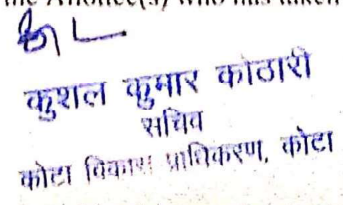 the Allottee(s) who has taken
कुशल कुमार कोठारी
सचिव
कोटा विकास प्राधिकरण, कोटा